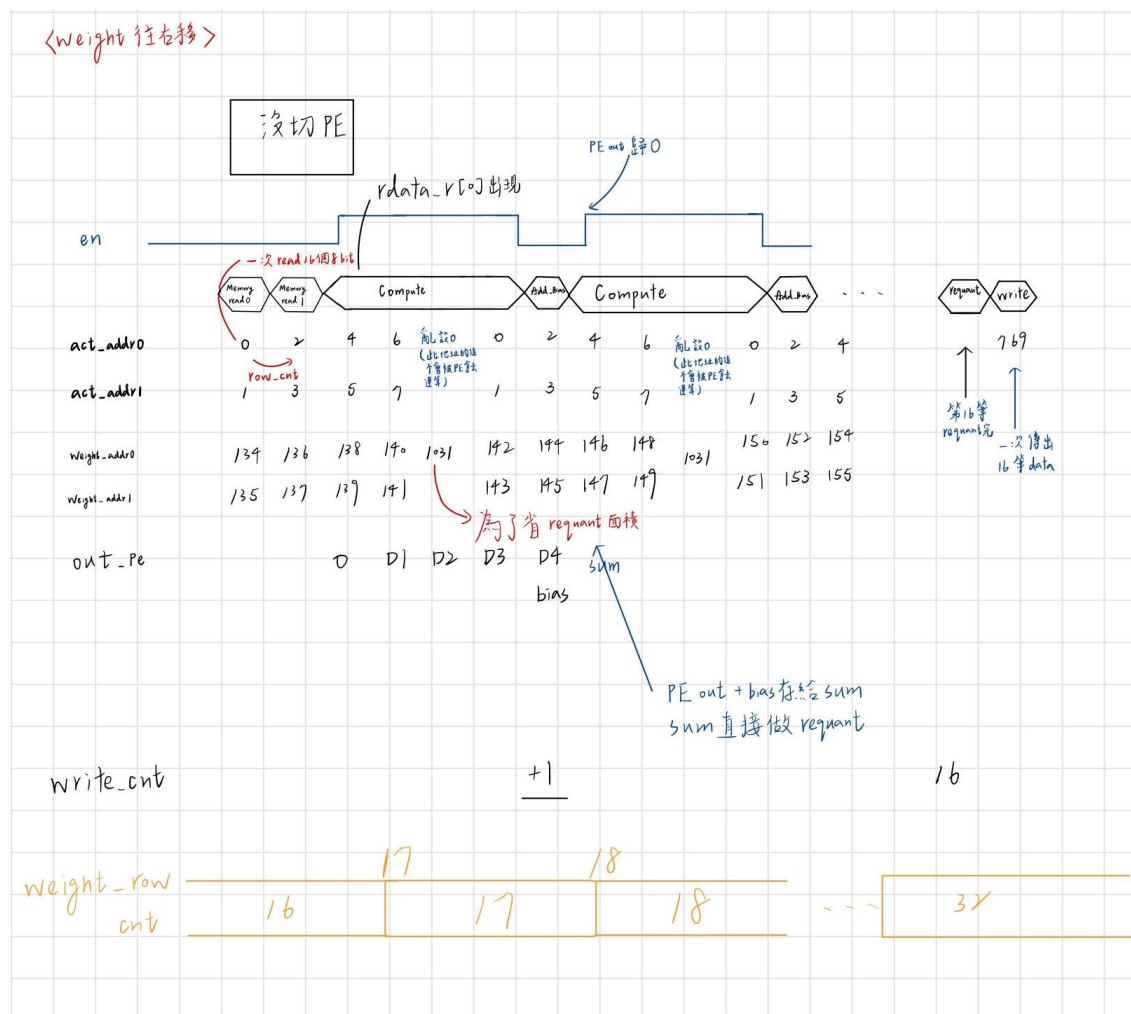 <weight 往右移>
沒切 PE
PE out 歸 0
rdata_r[0] 出現
en
一次 read 16個 8 bit
Memory read 0
Memory read 1
Compute
Add_Bias
Compute
Add_Bias
...
requant
write
act_addr0 0 2 4 6 亂設0 0 2 4 6 亂設0 0 2 4 769
(此地址的值
不會被PE拿去
運算)
(此地址的值
不會被PE拿去
運算)
row_cnt
act_addr1 1 3 5 7 1 3 5 7 1 3 5
第16筆
requant完
weight_addr0 134 136 138 140 1031 142 144 146 148 1031 150 152 154
一次傳出
16筆data
weight_addr1 135 137 139 141 143 145 147 149 151 153 155
為了省 requant 面積
out_Pe 0 D1 D2 D3 D4 sum
bias
PE out + bias 存給 sum
sum 直接做 requant
write_cnt +1 16
17 18
weight_row
cnt
16 17 18 --- 32